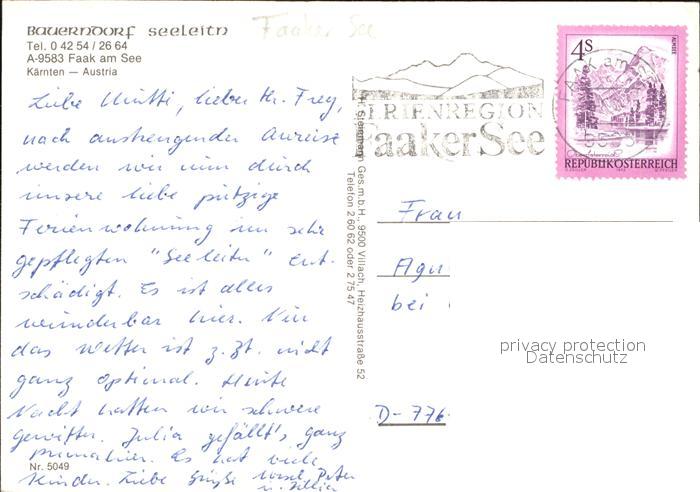 Bauerndorf seeleitn
Faaker See
Tel. 0 42 54 / 26 64
A-9583 Faak am See
Kärnten — Austria
Liebe Mutti, lieber Hr. Frey,
nach anstrengender Anreise
werden wir nun durch
unsere liebe putzige
Ferienwohnung im sehr
gepflegten "Seeleitn" ent-
schädigt. Es ist alles
wunderbar hier. Nur
das Wetter ist z. Zt. nicht
ganz optimal. Heute
Nacht hatten wir schwere
Gewitter. Julia gefällt's ganz
prima hier. Es hat viele
Kinder. Liebe Grüße Peter
Nr. 5049
Ges.m.b.H., 9500 Villach, Heizhausstraße 52
Telefon 2 60 62 oder 2 75 47
FERIENREGION
Faaker See
4S
ALMSEE
REPUBLIK ÖSTERREICH
Frau
Agn
bei
D-776
privacy protection
Datenschutz